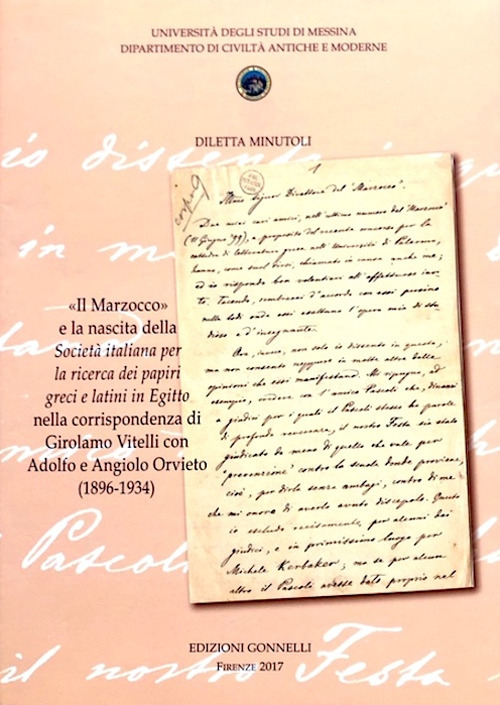 UNIVERSITÀ DEGLI STUDI DI MESSINA
DIPARTIMENTO DI CIVILTÀ ANTICHE E MODERNE
DILETTA MINUTOLI
«Il Marzocco»
e la nascita della
Società italiana per
la ricerca dei papiri
greci e latini in Egitto
nella corrispondenza di
Girolamo Vitelli con
Adolfo e Angiolo Orvieto
(1896-1934)
1
corpo 9
Illmo Signor Direttore del "Marzocco".
Due miei cari amici, nell'ultimo numero del "Marzocco"
(11 Giugno 99), a proposito del recente concorso per la
cattedra di letteratura greca nell'Università di Palermo,
hanno, come suol dirsi, chiamato in causa anche me;
ed io rispondo ben volentieri all'affettuoso
Tacendo, sembrerei d'accordo con essi persino
nelle lodi onde essi esaltano l'opera mia di stu-
dioso e d'insegnante.
Ora, invece, non solo io dissento in questo,
ma non consento neppure in molte altre delle
opinioni che essi manifestano. Mi ripugna, ad
esempio, credere con l'amico Pascoli che, dinanzi
a giudici per i quali il Pascoli stesso ha parole
di profonda reverenza, il nostro Festa sia stato
giudicato da meno di quello che vale per
"prevenzione" contro la scuola donde proviene,
cioè, per dirla senza ambagi, contro di me
che mi onoro di averlo avuto discepolo. Questo
io escludo recisamente, per alcuni dei
giudici, e in primissimo luogo per
Michele Kerbaker; ma se per alcun
altro il Pascoli avesse dato proprio nel
io dissento in
in m
Pascoli
il nostro Festa
EDIZIONI GONNELLI
FIRENZE 2017